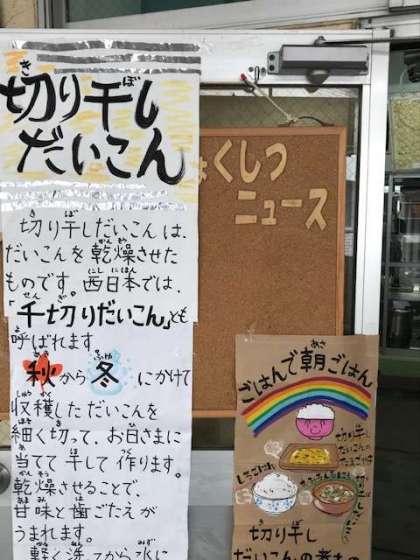 切り干し
だいこん
切り干しだいこんは、
だいこんを乾燥させた
ものです。西日本では、
「千切りだいこん」とも
呼ばれます。
秋から冬にかけて
収穫しただいこんを
細く切って、お日さまに
当てて干して作ります。
乾燥させることで、
甘味と歯ごたえが
うまれます。
軽く洗ってから水に
くしつ
ニュース
ごはんで朝ごはん
切り干し
だいこんの
たまごやき
しろごはん
切り干し
だいこんの煮もの